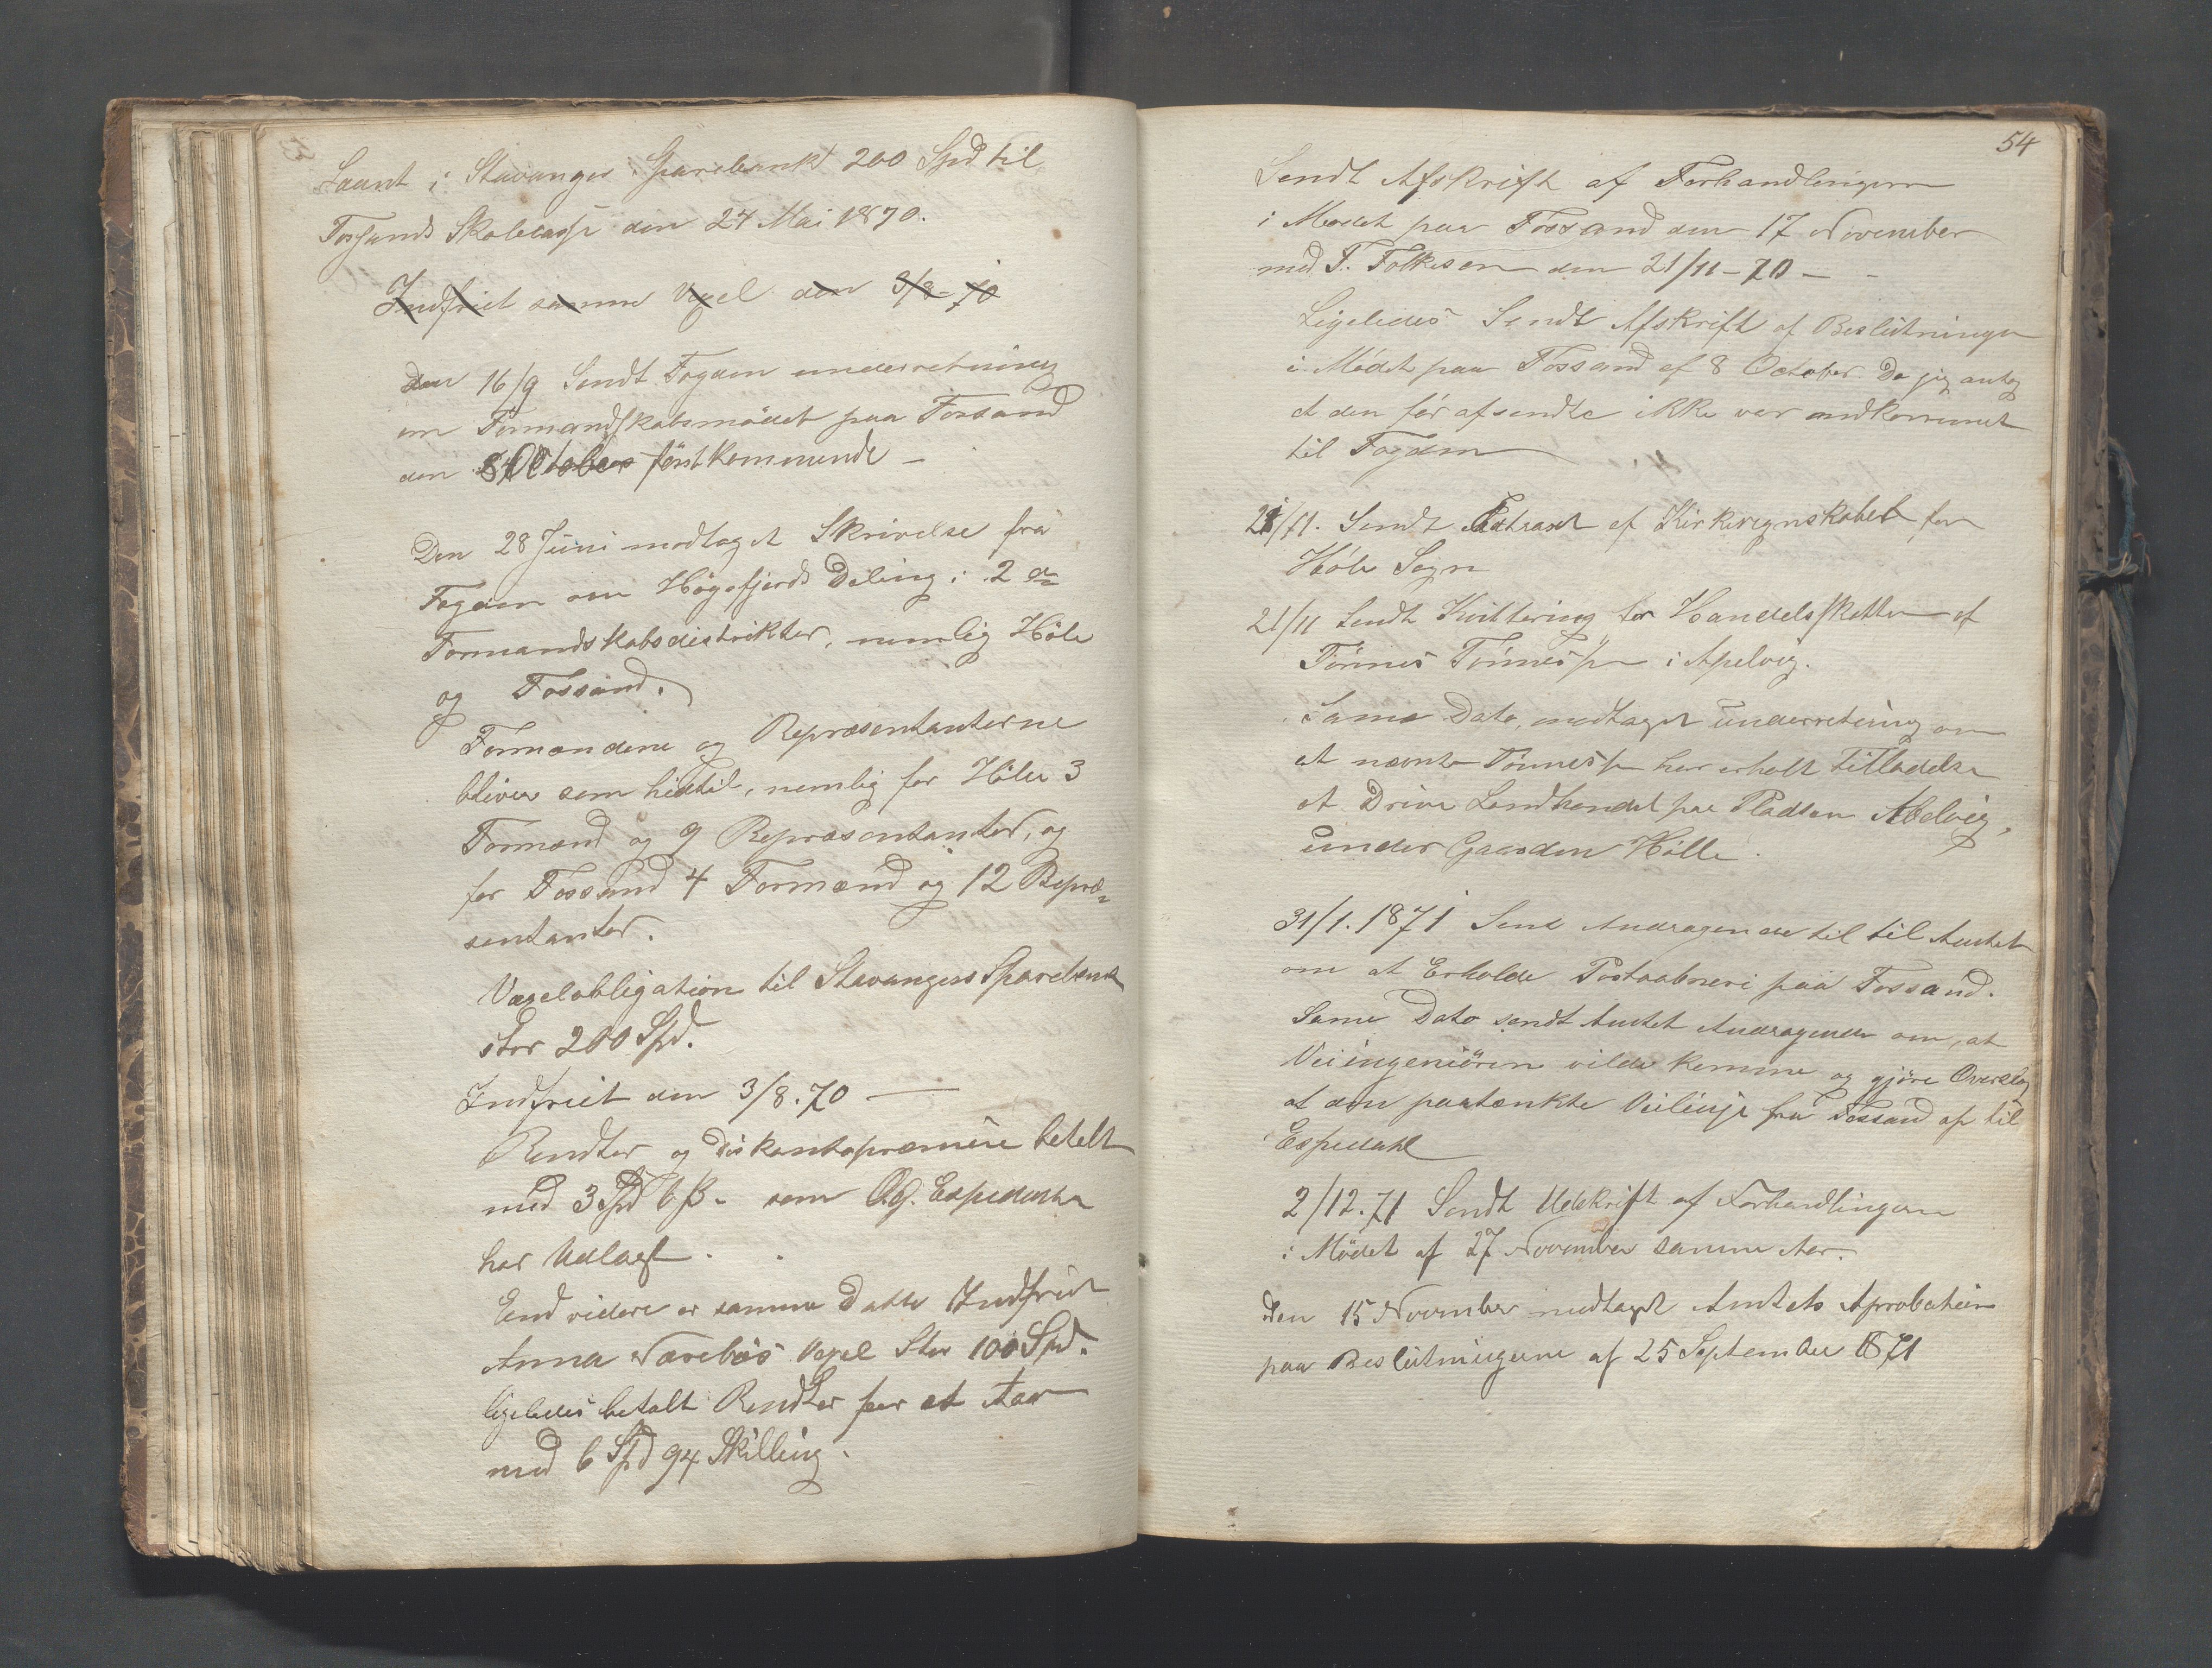 Laant i Stavanger Sparebank 200 Spd til
Fossands Skolecasse den 24 Mai 1870.
Indfriet samme Vexel den 3/8-70
Den 16/9 Sendt Fogden underretning
om Formandskabsmödet paa Fossand
den 8 October förstkommende —
Den 28 Juni modtaget Skrivelse fra
Fogden om Högsfjords Deling i 2de
Formandskabsdistrikter, nemlig Höle
og Fossand.
Formændene og Repræsentanterne
bliver som hidtil, nemlig for Höle 3
Formænd og 9 Repræsentanter, og
for Fossand 4 Formænd og 12 Repræ=
sentanter.
Vexelobligation til Stavangers Sparebank
stor 200 Spd.
Indfriet den 3/8.70 —
Rendter og Diskontopræmie betalt
med 3 Spd 6 ß. som O.G. Espedahl
har Udlagt.
End videre er samme Datto Indfriet
Anna Nærebös Vexel Stor 100 Spd.
ligeledes betalt Rendter for et Aar
med 6 Spd 94 Skilling.
54
Sendt Afskrift af Forhandlingerne
i Mødet paa Fossand den 17 November
med T. Folkesen den 21/11-70 —
Ligeledes Sendt Afskrift af Beslutninger
i Mödet paa Fossand af 8 October da jeg antog
at den för afsendte ikke var andkommet
til Fogden
21/11. Sendt Extract af Kirkeregnskabet for
Höle Sogn
21/11 Sendt Kvittering for Handelsskatten af
Tönnes Tönnessen i Apelvig.
Same Dato, modtaget underretning om
at nævnte Tönnessen har erholt Tilladelse
at Drive Landhandel paa Pladsen Abelvig,
under Gaarden Hölle.
31/1.1871 Send Andragende til til Amtet
om at Erholde Postaabneri paa Fossand.
Same Dato sendt Amtet Andragende om, at
Veiingeniören vilde komme og gjöre Overslag
at den paatænkte Veilinje fra Fossand op til
Espedahl
2/12.71 Sendt Udskrift af Forhandlingerne
i Mödet af 27 November samme Aar.
Den 15 November modtaget Amtets Aprobation
paa Beslutningerne af 25 September 1871